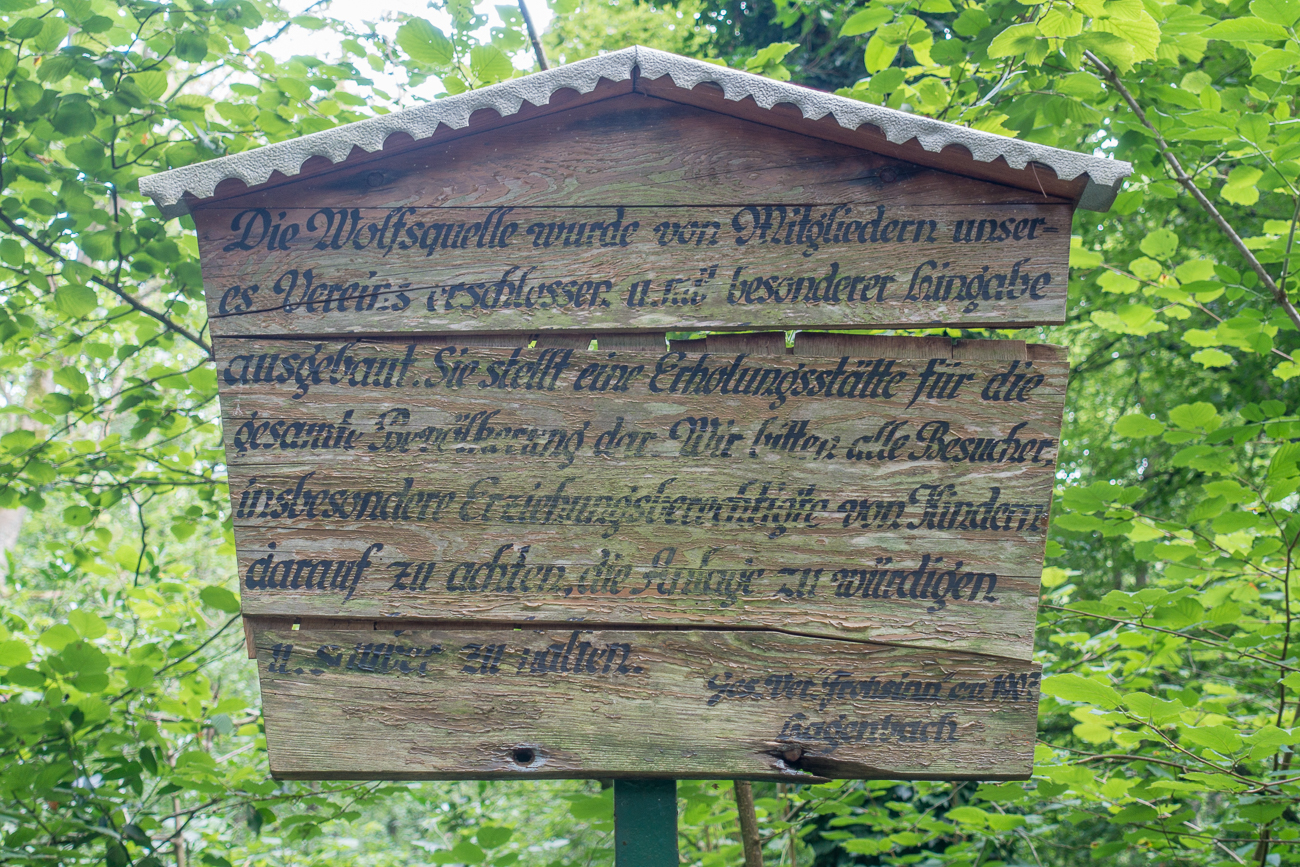 Die Wolfsquelle wurde von Mitgliedern unser-
es Vereins erschlossen u. mit besonderer Hingabe
ausgebaut. Sie stellt eine Erholungsstätte für die
gesamte Bevölkerung dar. Wir bitten alle Besucher,
insbesondere Erziehungsberechtigte von Kindern
darauf zu achten, die Anlage zu würdigen.
u. sauber zu halten.
Ges. Ver. Frohsinn
Hagenbach